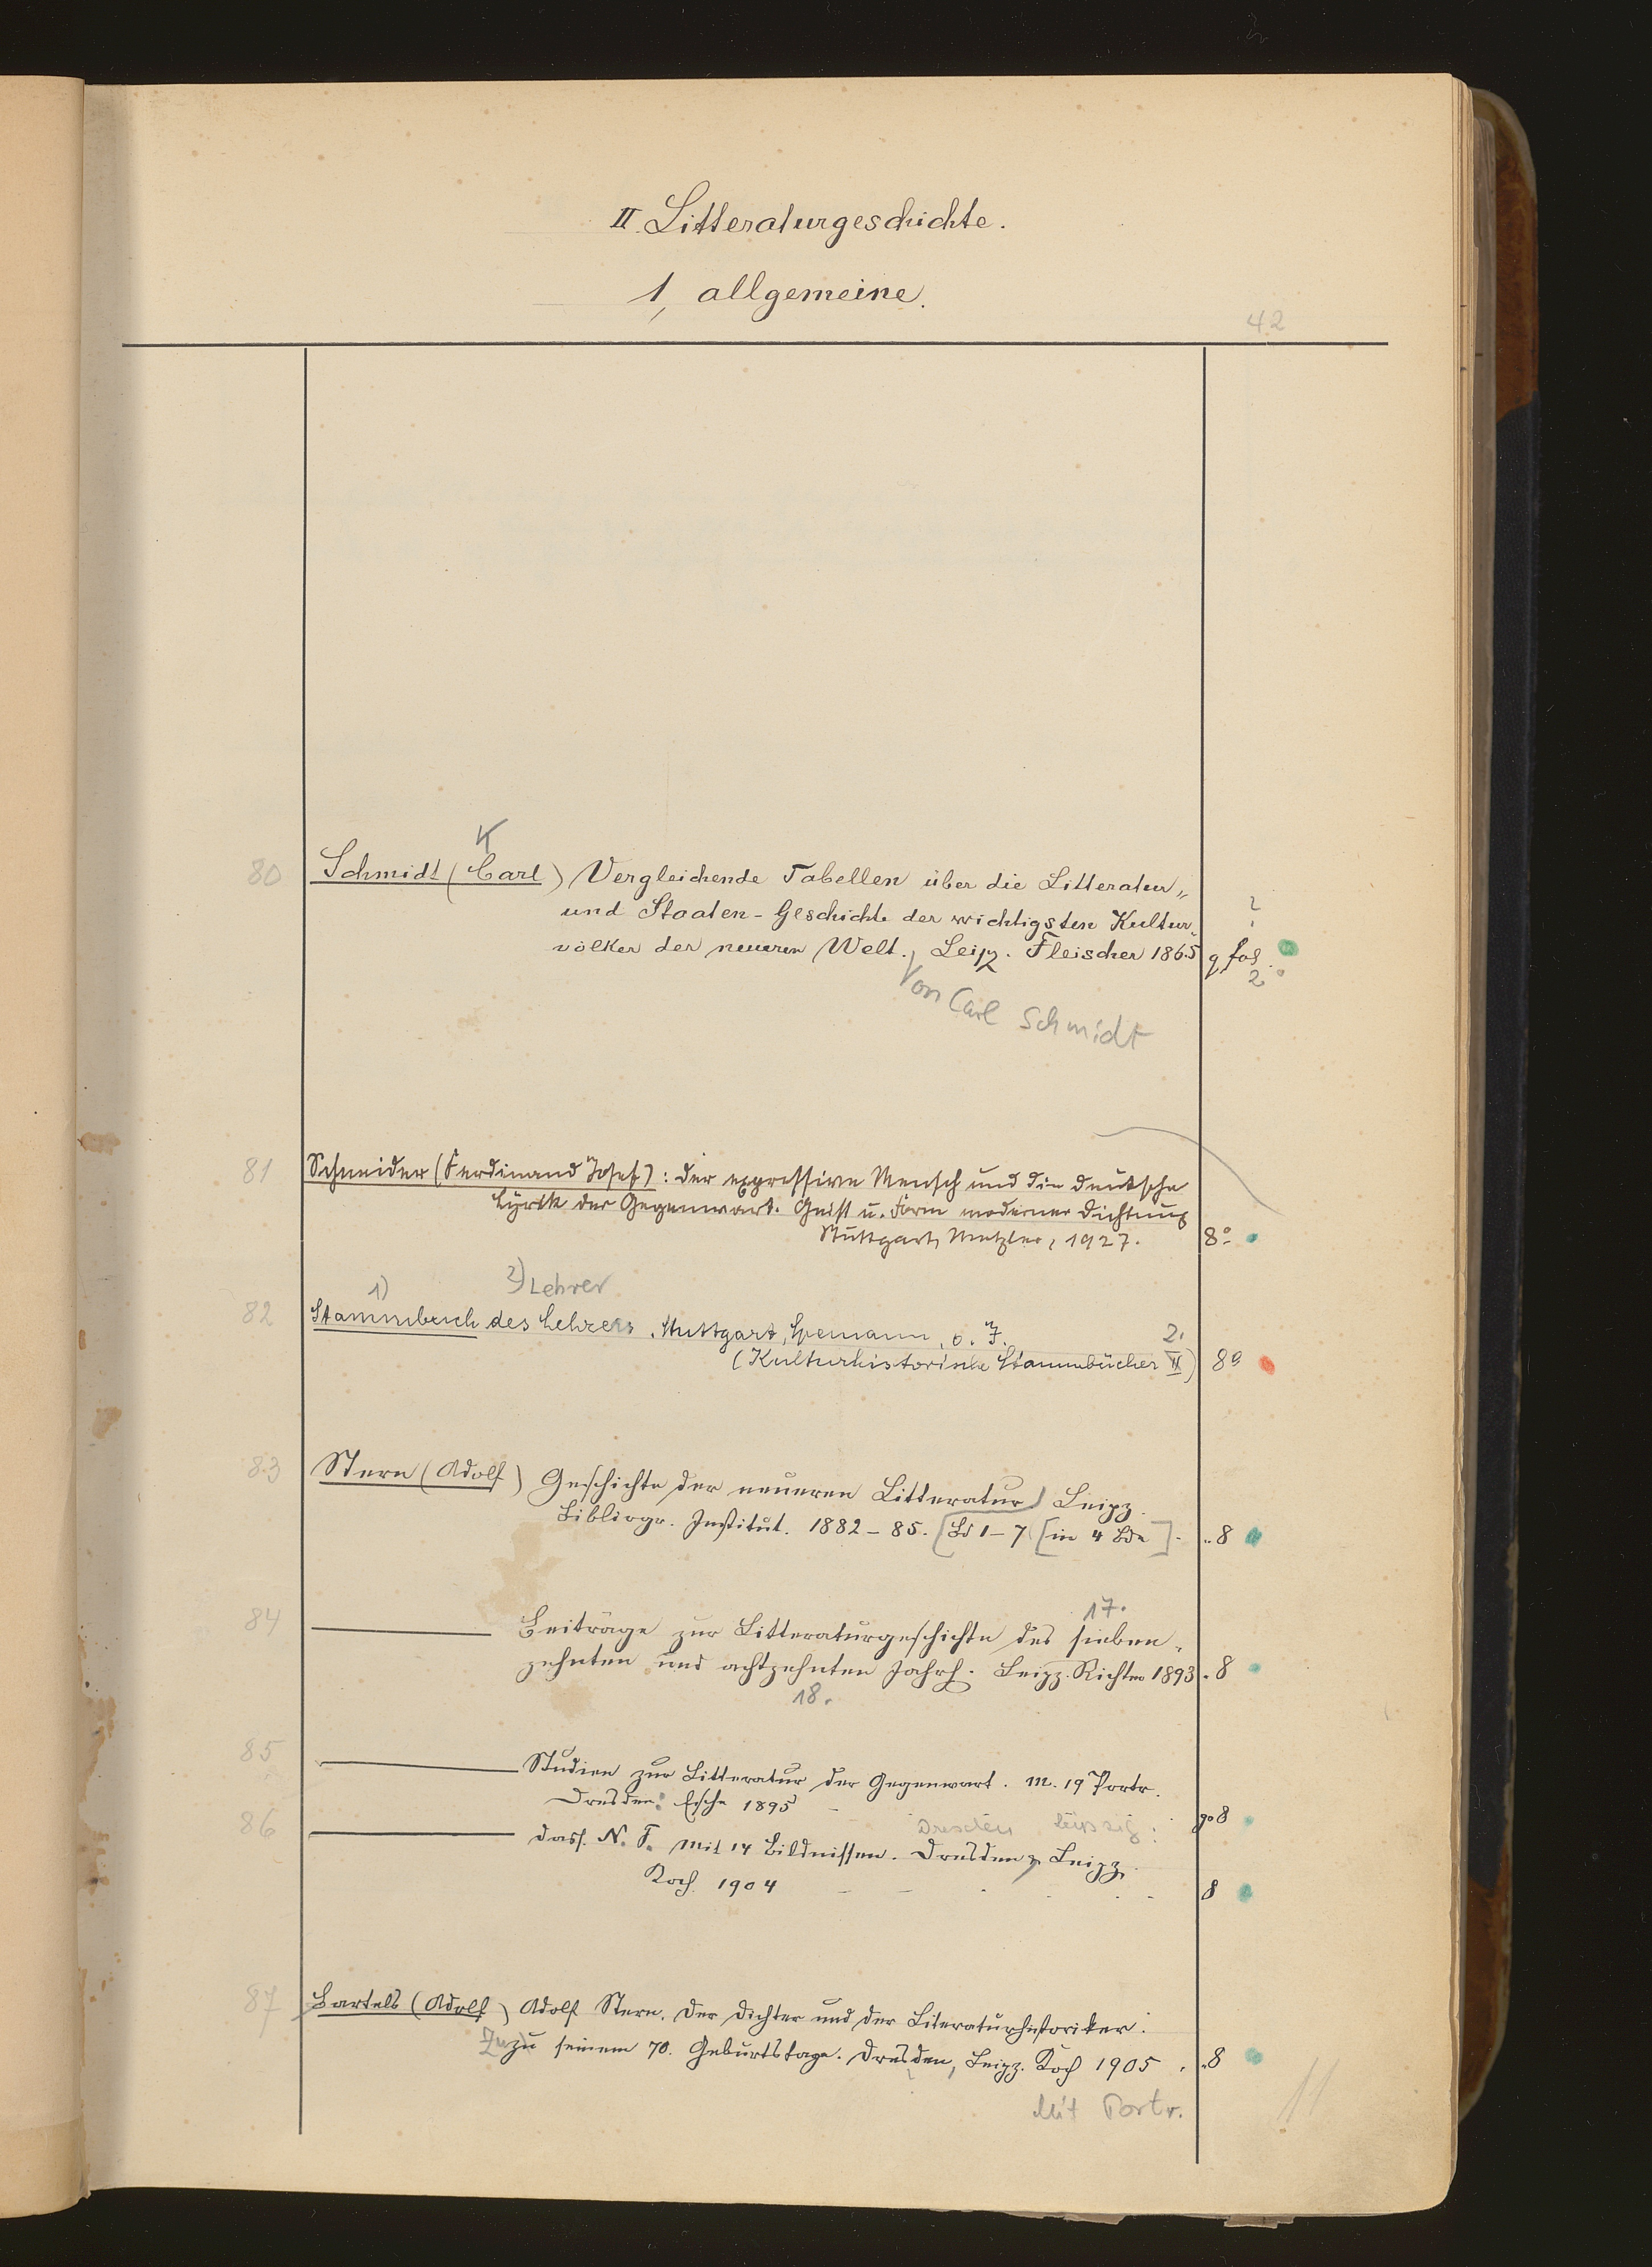 II. Litteraturgeschichte.
1, allgemeine.
42
K
80 Schmidt (Carl) Vergleichende Tabellen über die Litteratur„
und Staaten-Geschichte der wichtigsten Kultur„
völker der neueren Welt. Leipz. Fleischer 1865 q fol.
2
Von Carl Schmidt
81 Schneider (Ferdinand Josef): Der expressive Mensch und die deutsche
Lyrik der Gegenwart. Geist u. Form moderner Dichtung
Stuttgart, Metzler, 1927. 8°
1) 2) Lehrer
82 Stammbuch des Lehrers. Stuttgart, Spemann, o. J.
2.
(Kulturhistorische Stammbücher II) 8°
83 Stern (Adolf) Geschichte der neueren Litteratur Leipz.
Bibliogr. Institut. 1882-85. [Bd 1-7 [in 4 Bde]. 8
17.
84 Beiträge zur Litteraturgeschichte des sieben„
zehnten und achtzehnten Jahrh. Leipz. Richter 1893. 8
18.
85 Studien zur Litteratur der Gegenwart. M. 19 Portr.
Dresden: Esche 1895 go 8
Dresden Leipzig:
86 dass. N. F. Mit 14 Bildnissen. Dresden, Leipz.
Koch 1904 8
87 Bartels (Adolf) Adolf Stern. Der Dichter und der Literaturhistoriker.
Zu zu seinem 70. Geburtstage. Dresden, Leipz. Koch 1905. 8
Mit Portr.
11